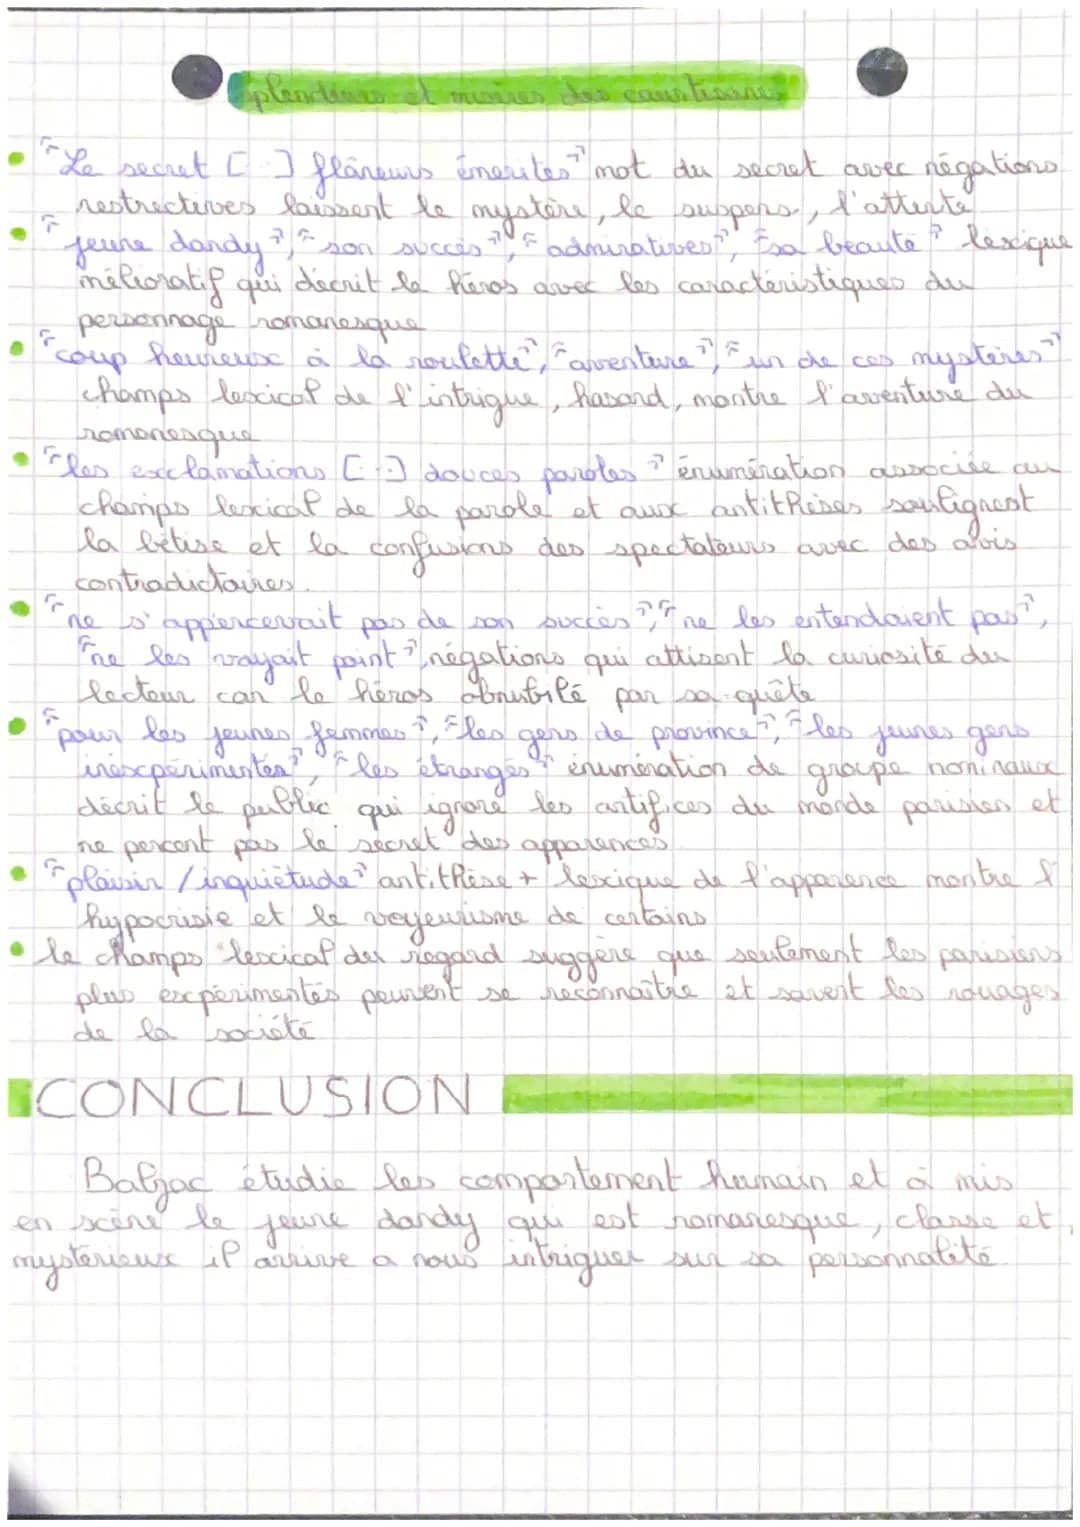 Splendeurs et misères des courtisanes
"Le secret [...] flâneurs émerites" mot du secret avec négations
restrectives laissent le mystère, le suspens, l'attente
"jeune dandy", "son succès", "admiratives", "sa beauté" lexique
mélioratif qui décrit le héros avec les caractéristiques du
personnage romanesque
"coup heureux à la roulette", "aventure", "un de ces mystères"
champs lexical de l'intrigue, hasard, montre l'aventure du
romanesque
"les exclamations [...] douces paroles" énumération associée au
champs lexical de la parole et aux antithèses soulignent
la bêtise et la confusions des spectateurs avec des avis
contradictoires.
"ne s'appercervait pas de son succès", "ne les entendaient pas",
"ne les voyait point", négations qui attisent la curiosité du
lecteur car le héros obnubilé par sa quête
"pour les jeunes femmes", "les gens de province", "les jeunes gens
inexpérimentés", "les étrangés" énumération de groupe nominaux
décrit le public qui ignore les artifices du monde parisien et
ne percent pas le secret des apparences
"plaisir / inquiétude" antithèse + lexique de l'apparence montre l'
hypocrisie et le voyeurisme de certains
le champs lexical du regard suggère que seulement les parisiens
plus expérimentés peuvent se reconnaître et savent les rouages
de la société
CONCLUSION
Balzac étudie les comportement humain et à mis
en scène le jeune dandy qui est romanesque, classe et
mystérieux il arrive a nous intriguer sur sa personnalité